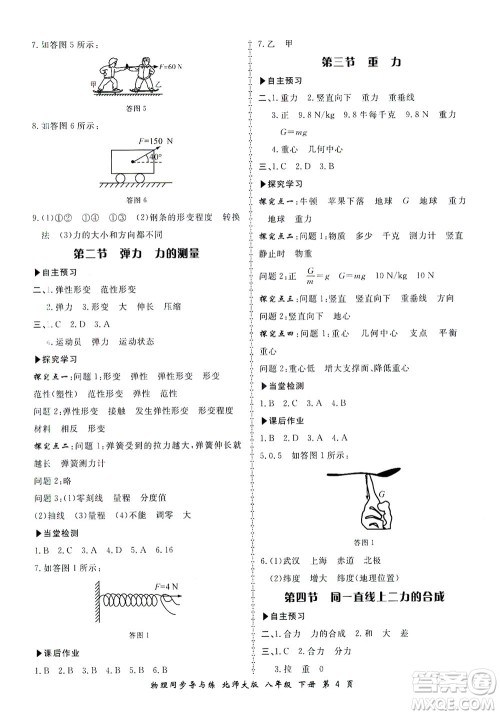 7.如答图5所示:
F=60 N
甲
乙
答图5
8.如答图6所示:
F=150 N
40°
答图6
9.(1)①① ①② (2)钢条的形变程度 转换
法 (3)力的大小和方向都不同
第二节 弹力 力的测量
▶自主预习
二、1.弹性形变 范性形变
2.弹性形变
3.形变 力 大 伸长 压缩
4.运动员 弹力 运动状态
三、1.C 2.A
▶探究学习
探究点一:问题1:形变 弹性 弹性形变 不能
范性(塑性) 范性形变
问题2:弹性形变 接触 发生弹性形变
材料 反 弹性形变
探究点二:问题1:弹簧受到的拉力越大,弹簧伸长就
越长 弹簧测力计
问题2:略
问题3:(1)零刻线 量程 分度值
(2)抽线 (3)量程 (4)平行
▶当堂检测
1.B 2.D 3.C 4.D 5.A 6.16
7.如答图1所示:
F=4 N
答图1
▶课后作业
1.B 2.C 3.A 4.D 5.B 6.D
7.乙 甲
第三节 重 力
▶自主预习
二、1.重力 2.竖直向下 重力 重垂线
3.正 9.8 N/kg 9.8牛每千克 重力
G=mg
4.重心 几何中心
三、1.C 2.A
▶探究学习
探究点一:牛顿 苹果下落 地球 G 地球
探究点二:问题1:物质 多少 千克 测力计
静止 物重
问题2:G/m=g 10 N/kg G=mg
问题3:竖直向下 重垂线 竖直
探究点三:问题1:重心 几何中心 支点 平衡
重心
问题2:重心低 增大 支承面 大
▶当堂检测
1.B 2.A 3.C 4.A
▶课后作业
1.B 2.B 3.C 4.D
5.0.5 如答图1所示:
G
答图1
6.(1)武汉 上海 赤道 北极
(2)纬度 增大 纬度(地理位置)
第四节 同一直线上二力的合成
▶自主预习
二、1.合力 力的合成 合力
2.合力
3.拉 重 0
物理同步导与练 北师大版 八年级 下册 第4页